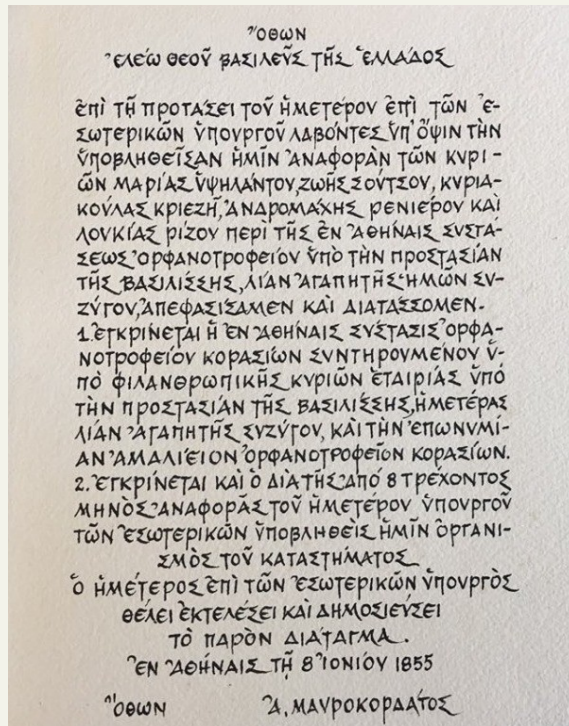 Ὄθων
Ἐλέῳ Θεοῦ Βασιλεὺς τῆς Ἑλλάδος
ἐπὶ τῇ προτάσει τοῦ ἡμετέρου ἐπὶ τῶν ἐ-
σωτερικῶν ὑπουργοῦ λαβόντες ὑπ' ὄψιν τὴν
ὑποβληθεῖσαν ἡμῖν ἀναφορὰν τῶν κυρι-
ῶν Μαρίας Ὑψηλάντου, Ζωῆς Σούτσου, Κυρια-
κούλας Κριεζῆ, Ἀνδρομάχης Ρενιέρου καὶ
Λουκίας Ρίζου περὶ τῆς ἐν Ἀθήναις συστά-
σεως ὀρφανοτροφείου ὑπὸ τὴν προστασίαν
τῆς Βασιλίσσης, λίαν ἀγαπητῆς ἡμῶν συ-
ζύγου, ἀπεφασίσαμεν καὶ διατάσσομεν.
1. ἐγκρίνεται ἡ ἐν Ἀθήναις σύστασις ὀρφα-
νοτροφείου κορασίων συντηρουμένου ὑ-
πὸ φιλανθρωπικῆς κυριῶν ἑταιρίας ὑπὸ
τὴν προστασίαν τῆς Βασιλίσσης, ἡμετέρας
λίαν ἀγαπητῆς συζύγου, καὶ τὴν ἐπωνυμί-
αν Ἀμαλίειον ὀρφανοτροφεῖον κορασίων.
2. ἐγκρίνεται καὶ ὁ διὰ τῆς ἀπό 8 τρέχοντος
μηνὸς ἀναφορᾶς τοῦ ἡμετέρου ὑπουργοῦ
τῶν ἐσωτερικῶν ὑποβληθεὶς ἡμῖν ὀργανι-
σμὸς τοῦ καταστήματος
ὁ ἡμέτερος ἐπὶ τῶν ἐσωτερικῶν ὑπουργὸς
θέλει ἐκτελέσει καὶ δημοσιεύσει
τὸ παρὸν διάταγμα.
ἐν Ἀθήναις τῇ 8 Ἰουνίου 1855
Ὄθων Ἀ. Μαυροκορδάτος